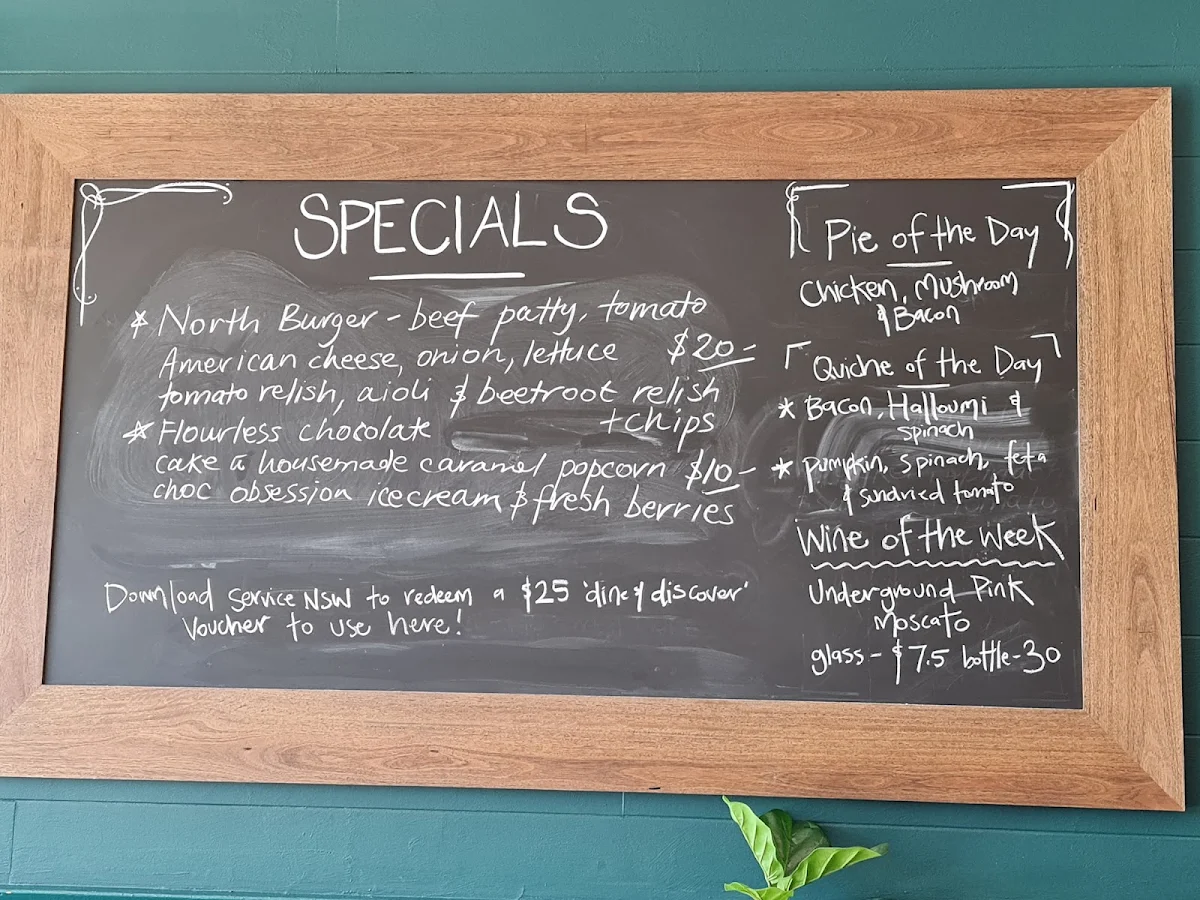 SPECIALS
* North Burger - beef patty, tomato
American cheese, onion, lettuce $20-
tomato relish, aioli & beetroot relish
+ chips
* Flourless chocolate
cake & housemade caramel popcorn $10-
choc obsession icecream & fresh berries
Download service NSW to redeem a $25 'dine & discover'
Voucher to use here!
Pie of the Day
Chicken, Mushroom
& Bacon
Quiche of the Day
* Bacon, Halloumi &
spinach
* pumpkin, spinach, feta
& sundried tomato
Wine of the Week
Underground Pink
Moscato
glass - $7.5 bottle - 30